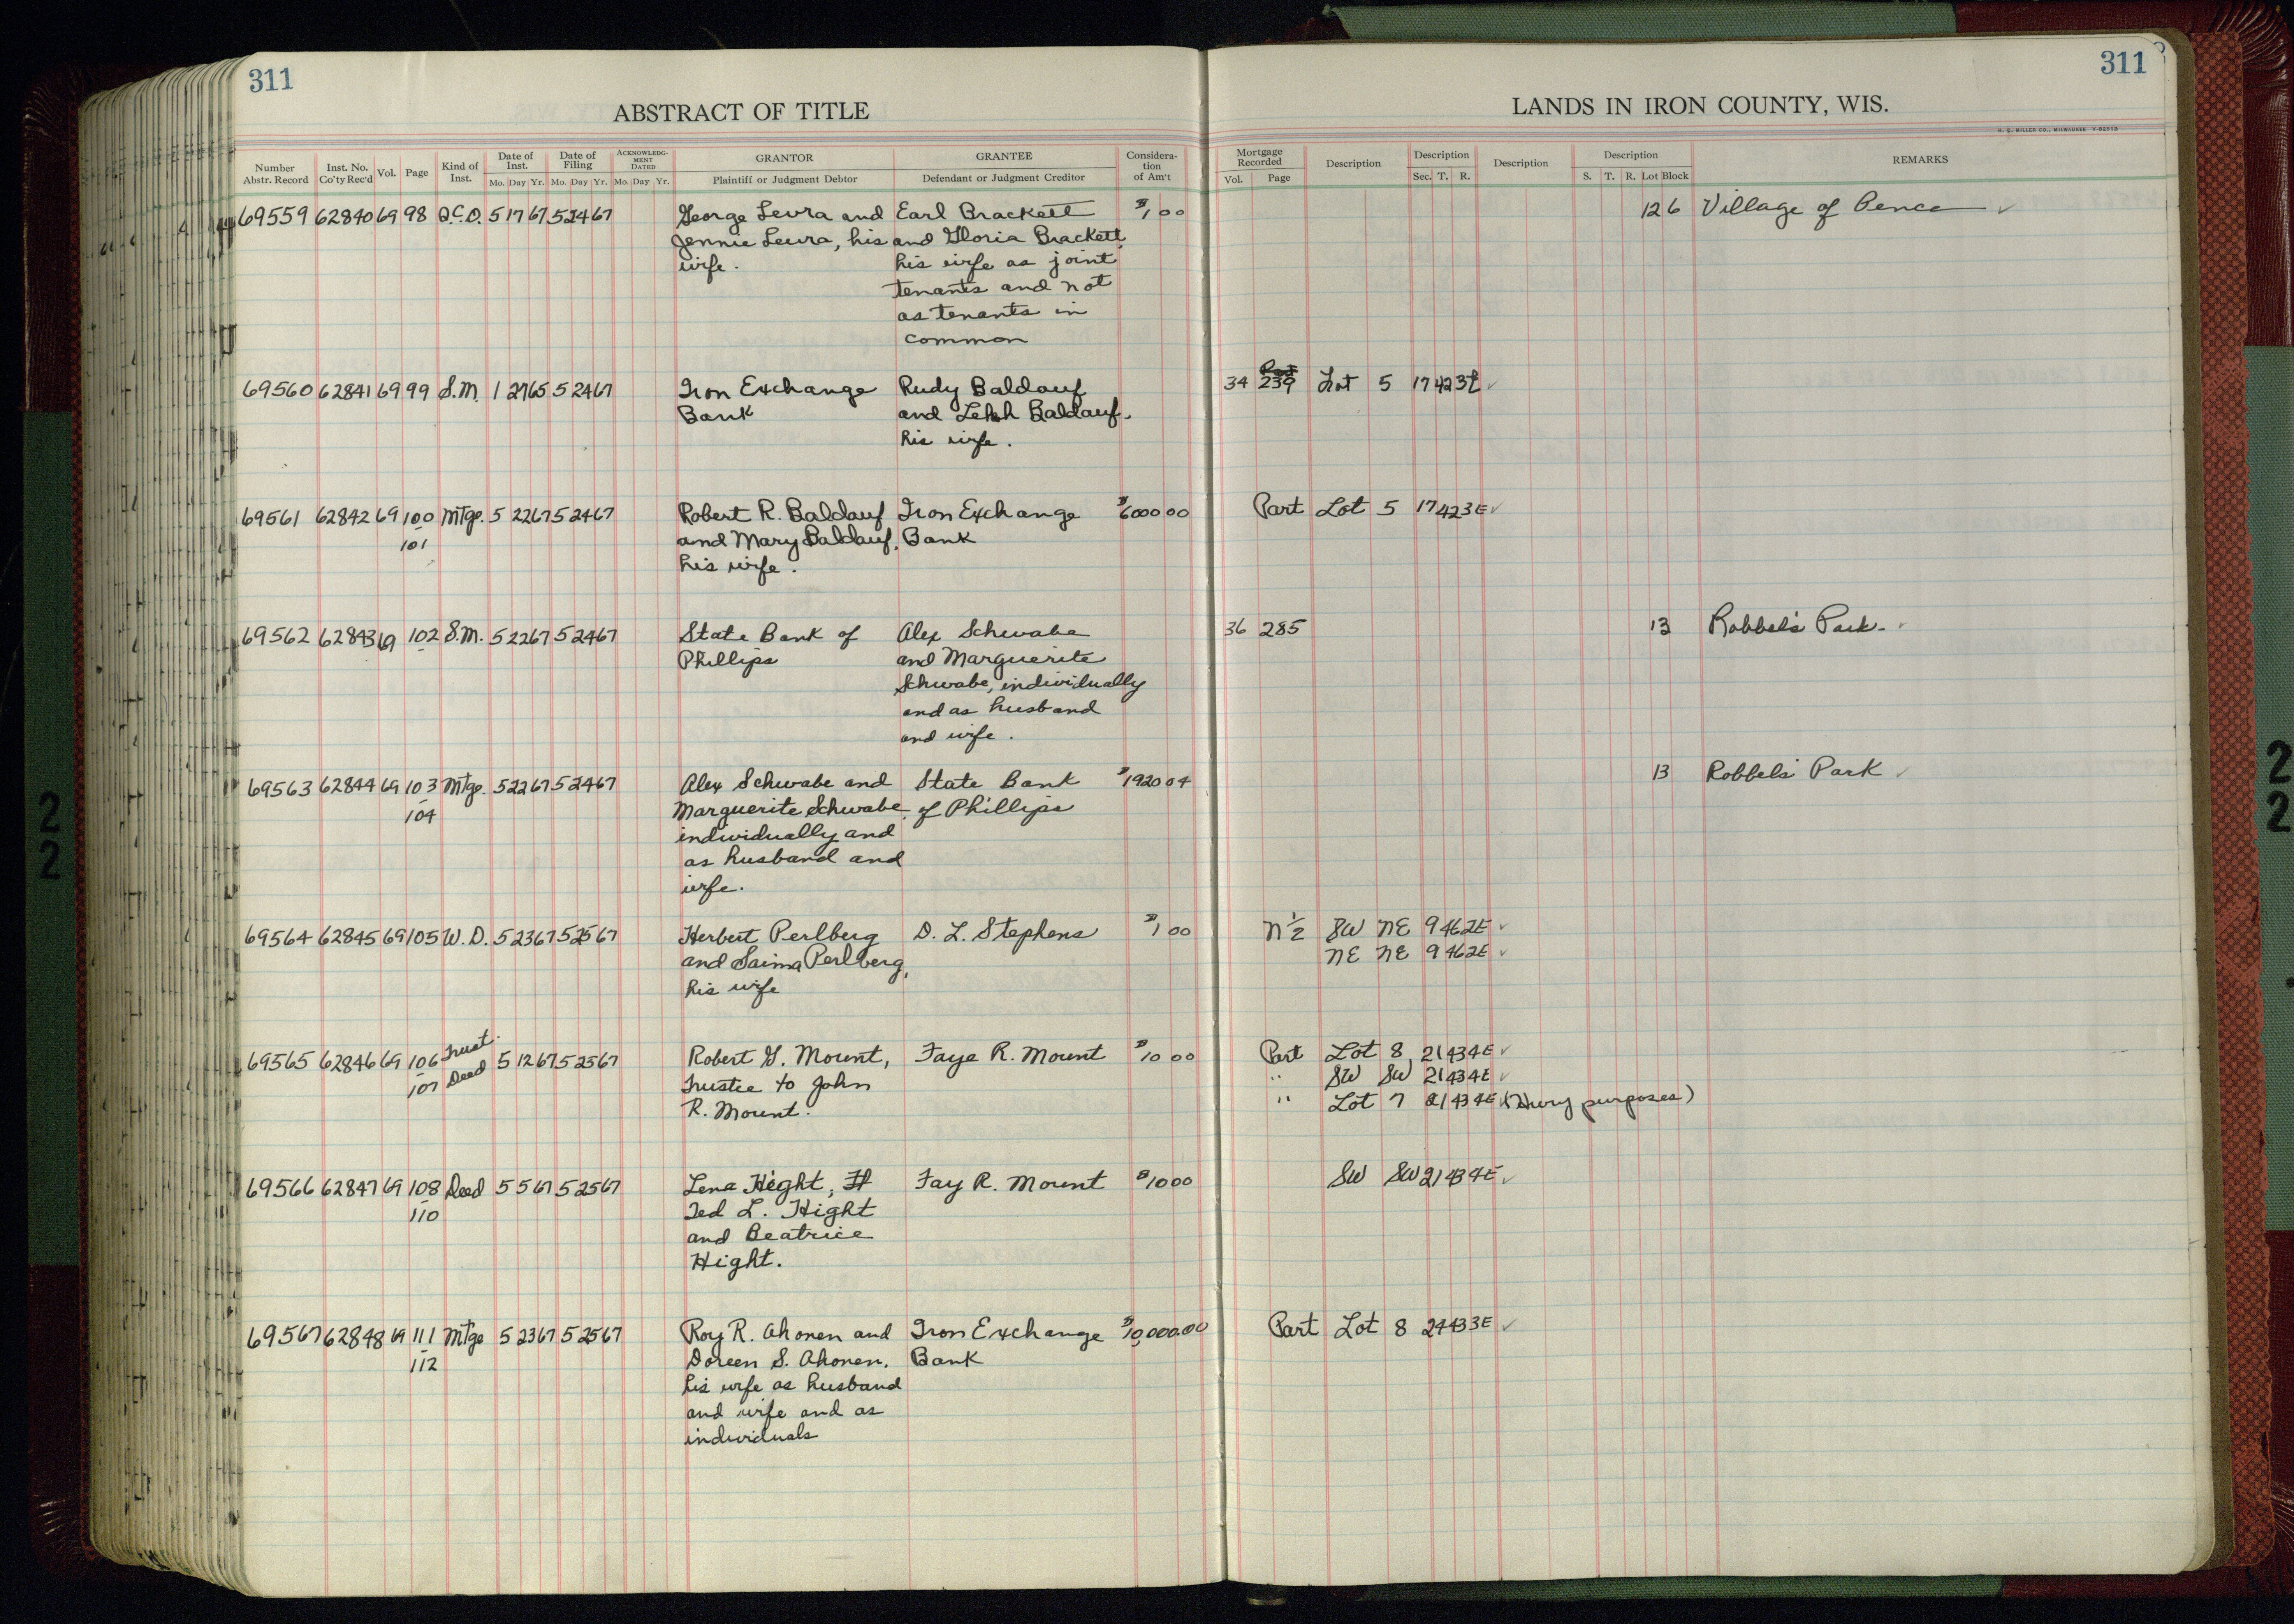 311
311
ABSTRACT OF TITLE
LANDS IN IRON COUNTY, WIS.
H. C. MILLER CO., MILWAUKEE
Number Abstr. Record | Inst. No. Co'ty Rec'd | Vol. | Page | Kind of Inst. | Date of Inst. Mo. Day Yr. | Date of Filing Mo. Day Yr. | ACKNOWLEDG-MENT DATED Mo. Day Yr. | GRANTOR Plaintiff or Judgment Debtor | GRANTEE Defendant or Judgment Creditor | Considera-tion of Am't | Mortgage Recorded Vol. Page | Description | Description Sec. T. R. | Description | Description S. T. R. Lot Block | REMARKS
69559 62840 69 98 Q.C.D. 5 17 67 5 24 67 George Leura and Earl Brackett $1 00 12 6 Village of Pence ✓
Jennie Leura, his and Gloria Brackett,
wife. his wife as joint
tenants and not
as tenants in
common
69560 62841 69 99 S.M. 1 27 65 5 24 67 Iron Exchange Rudy Baldauf 34 239 Lot 5 17 42 3E ✓
Bank and Leah Baldauf,
his wife.
69561 62842 69 100 Mtge. 5 22 67 5 24 67 Robert R. Baldauf Iron Exchange $6000 00 Part Lot 5 17 42 3E ✓
101 and Mary Baldauf, Bank
his wife.
69562 62843 69 102 S.M. 5 22 67 5 24 67 State Bank of Alex Schwabe 36 285 13 Robbels Park ✓
Phillips and Marguerite
Schwabe, individually
and as husband
and wife.
69563 62844 69 103 Mtge. 5 22 67 5 24 67 Alex Schwabe and State Bank $1920 04 13 Robbels Park ✓
104 Marguerite Schwabe, of Phillips
individually and
as husband and
wife.
69564 62845 69 105 W.D. 5 23 67 5 25 67 Herbert Perlberg D. L. Stephens $1 00 N½ SW NE 9 46 2E ✓
and Saima Perlberg, NE NE 9 46 2E ✓
his wife
69565 62846 69 106 Trust Deed 5 12 67 5 25 67 Robert G. Mount, Faye R. Mount $10 00 Part Lot 8 21 43 4E ✓
107 Trustee to John " SW SW 21 43 4E ✓
R. Mount. " Lot 7 21 43 4E ✓ (Hwy purposes)
69566 62847 69 108 Deed 5 5 67 5 25 67 Lena Hight, Fay R. Mount $10 00 SW SW 21 43 4E ✓
110 Ted L. Hight
and Beatrice
Hight.
69567 62848 69 111 Mtge 5 23 67 5 25 67 Roy R. Ahonen and Iron Exchange $10,000.00 Part Lot 8 24 43 3E ✓
112 Doreen S. Ahonen, Bank
his wife as husband
and wife and as
individuals
2
2
2
2